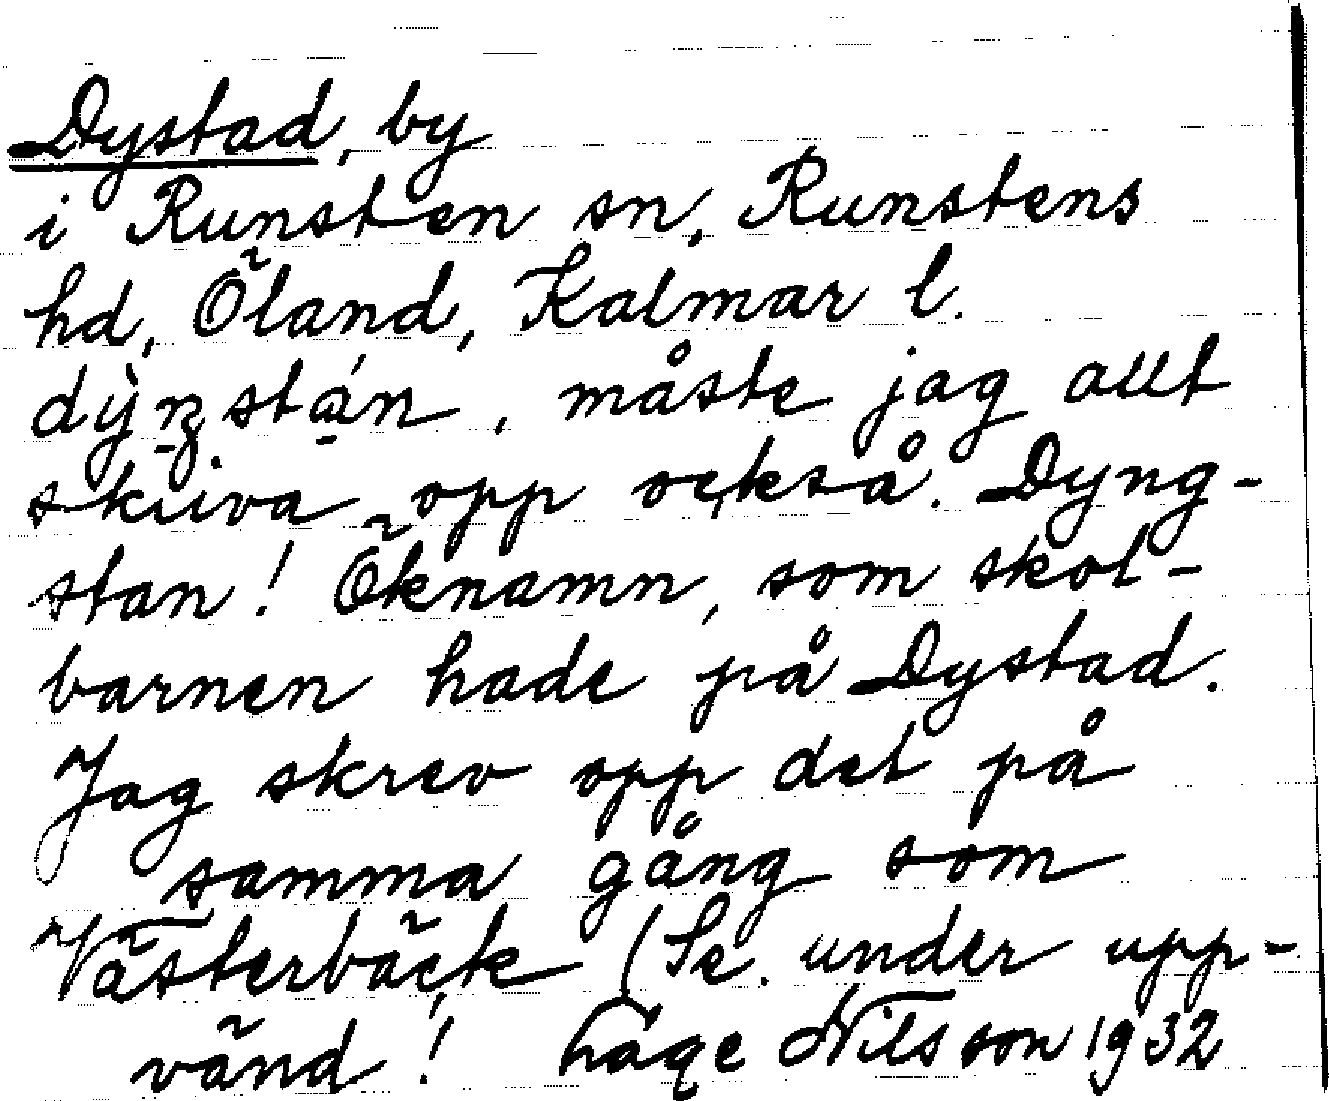 Dystad, by
i Runsten sn, Runstens
hd, Öland, Kalmar l.
måste jag allt
skriva opp också. Dyng-
stan! Öknamn, som skol-
barnen hade på Dystad.
Jag skrev opp det på
samma gång som
Västerbäck (Se. under upp-
vänd! Håge Nilsson 1932